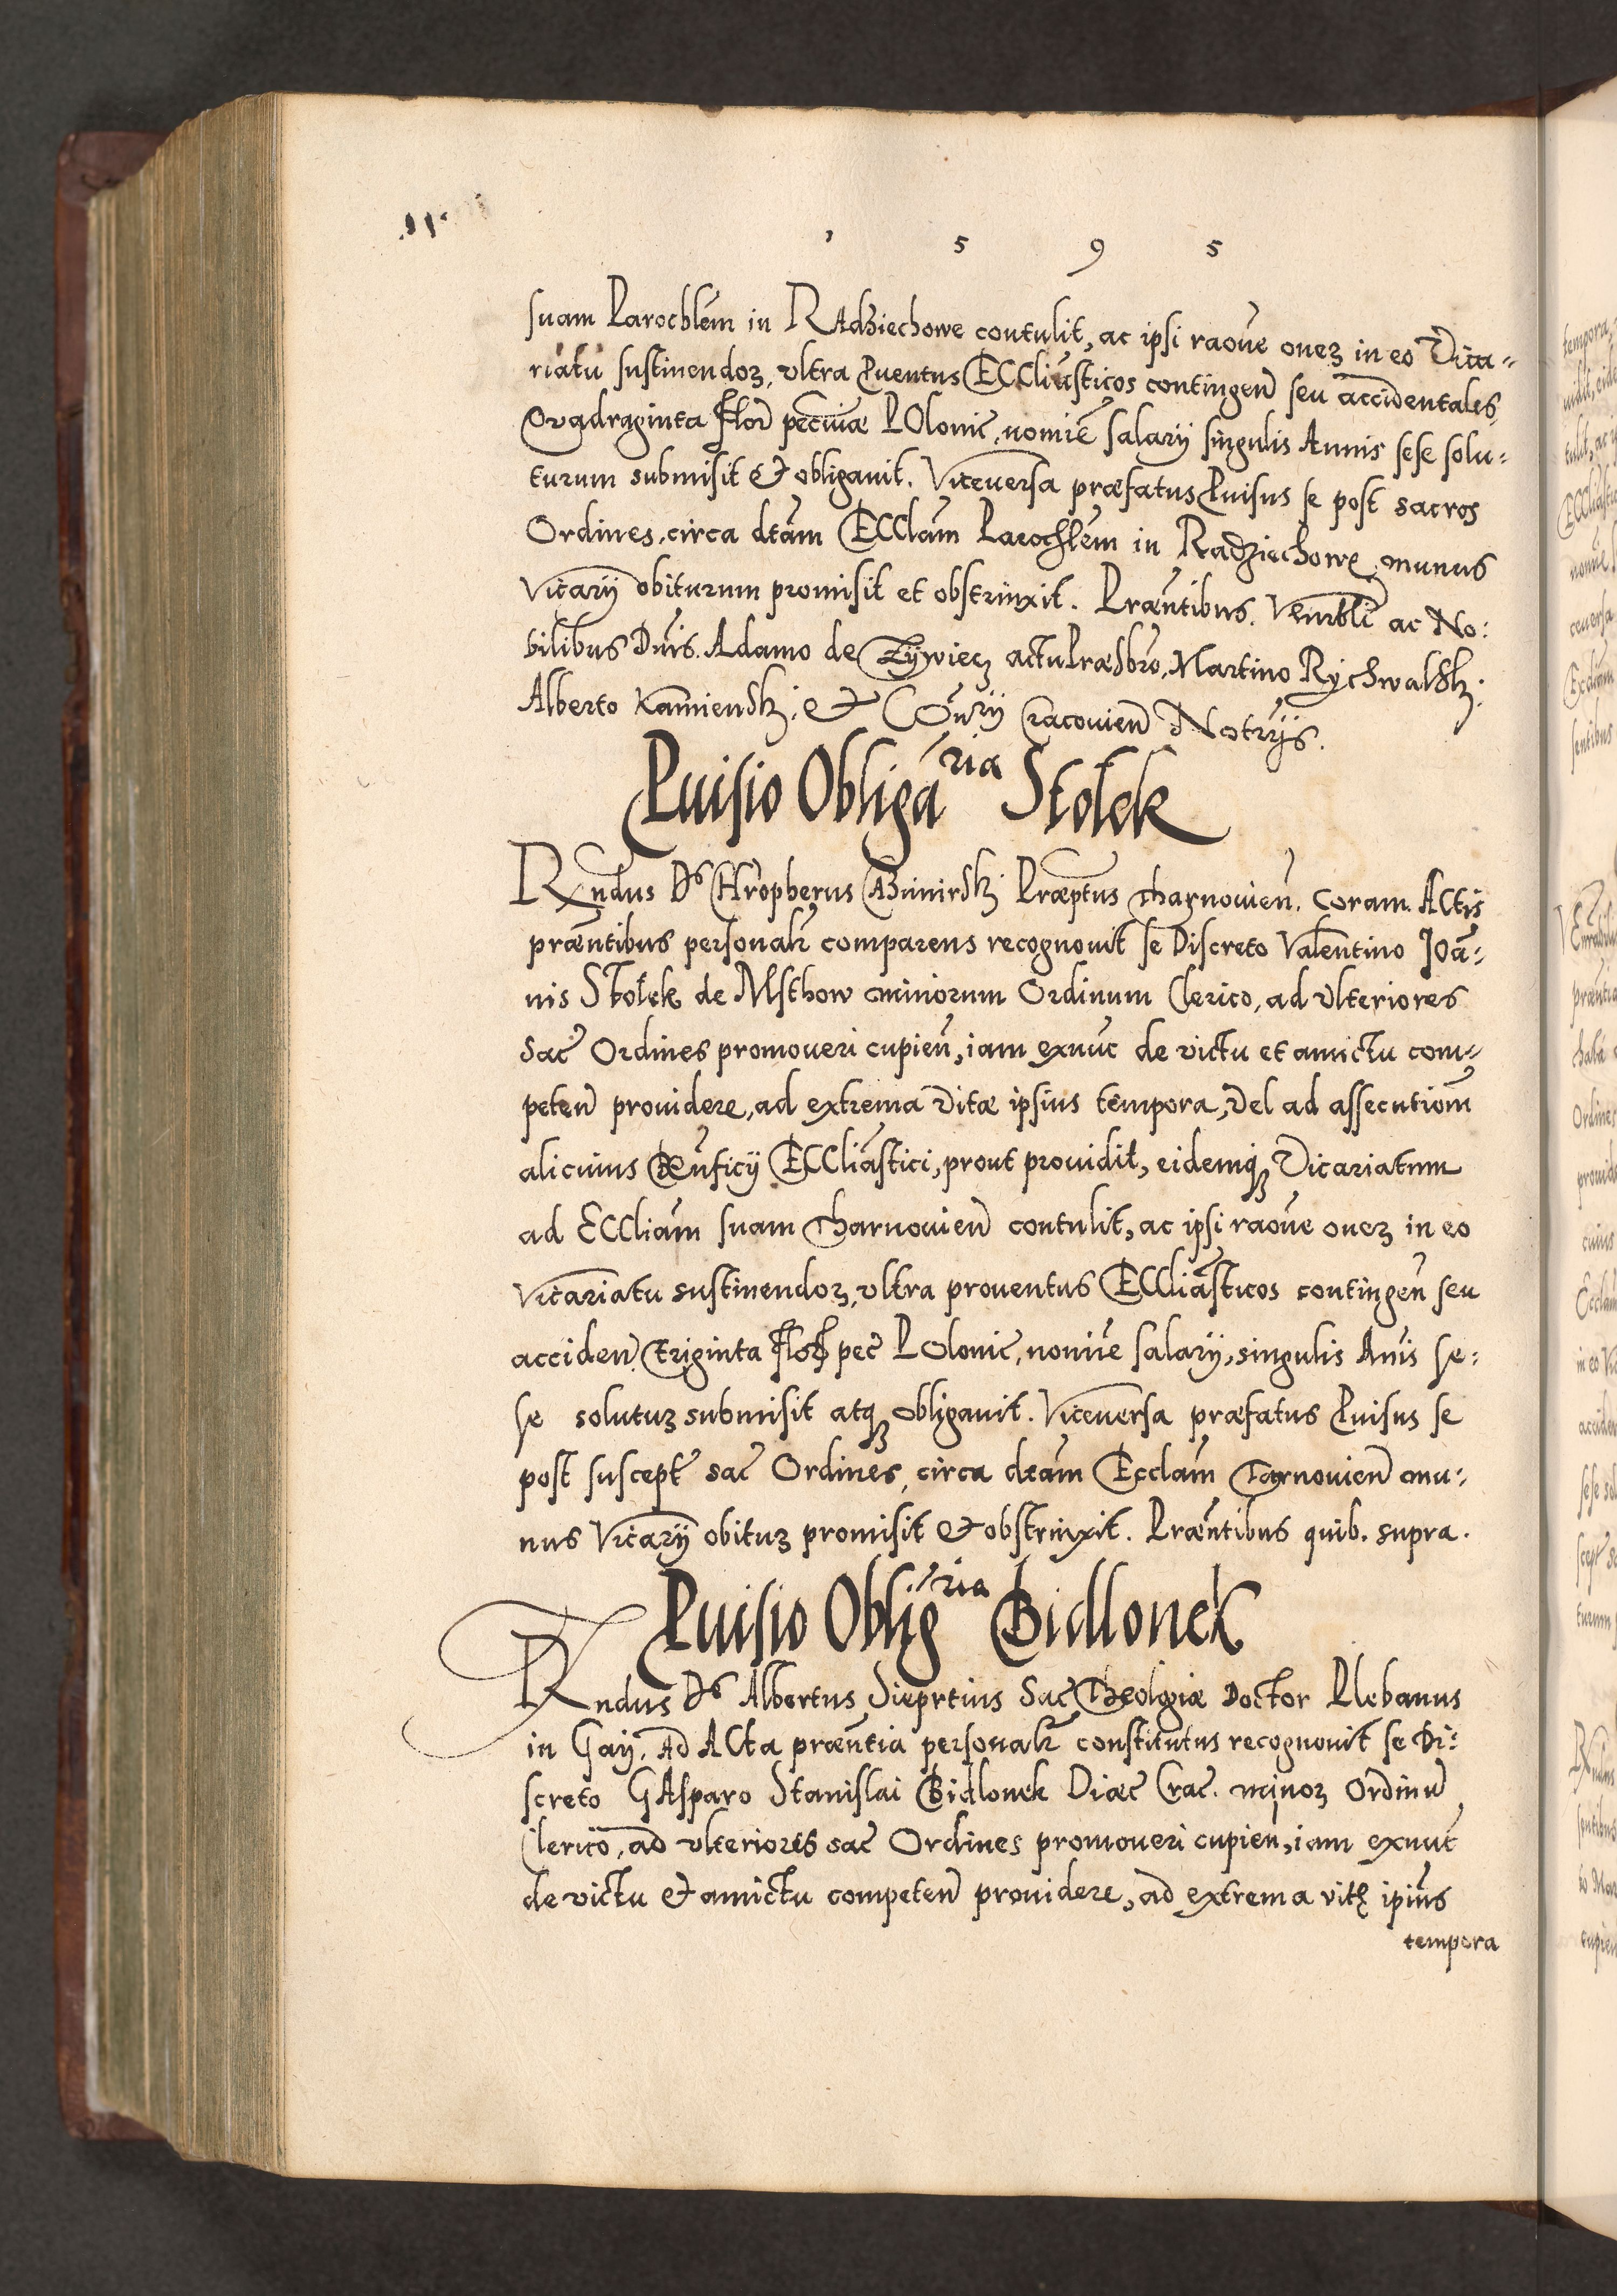 1 5 9 5
suam Parochlem in RAdziechowe contulit, ac ipsi raoue onez in eo Vica-
riatu sustinendoz, vltra Puentus ECCliasticos contingen seu accidentales
Quadraginta Flor pecuniæ POlonic, nomie salarÿ singulis Annis sese solu-
turum submisit et obligauit. Viceuersa præfatus Puisus se post sacros
Ordines, circa dtam ECClam Parochlem in Radziechowe, munus
Vicarÿ obiturum promisit et obstrinxit. Præntibus. Venrbli ac No:
bilibus Dnis. Adamo de Zÿwiecz actu Præsbro, Martino Rychwalskj.
Alberto Kamienskj. et Conrÿ Cracouien Notrÿs.
Puisio Obligaria Stołek
Rndus Ds Præptus Tharnouien. Coram Actis
præntibus personalr comparens recognouit se Discreto Valentino Joa-
nis Stołek de Msthow minorum Ordinum Clerico, ad vlteriores
Sac Ordines promoueri cupien, iam exnuc de victu et amictu com-
peten prouidere, ad extrema vitæ ipsius tempora, vel ad assecutiom
alicuius Benficÿ ECCliastici, prout prouidit, eidemqz Vicariatum
ad ECCliam suam Tharnouien contulit, ac ipsi raoue onez in eo
Vicariatu sustinendoz, vltra prouentus ECCliasticos contingen seu
acciden triginta Flor pec POlonic, nomine salarÿ, singulis Anis se-
se solutuz submisit atqz obligauit. Viceuersa præfatus Puisus se
post suscept sac Ordines, circa dtam Ecclam Tarnouien mu-
nus Vicarÿ obituz promisit et obstrinxit. Præntibus quib. supra.
Puisio Obligria Bidlonek
Rndus Ds Albertus Sieprtius Sac Theolgiæ Doctor Plebanus
in Gaÿ. AD ACta præntia personalr constitutus recognouit se Di-
screto GAsparo Stanislai Bidlonek Diæc Crac. minoz Ordinu
Clerico, ad vlteriores sac Ordines promoueri cupien, iam exnuc
de victu et amictu competen prouidere, ad extrema vitę ipius
tempora